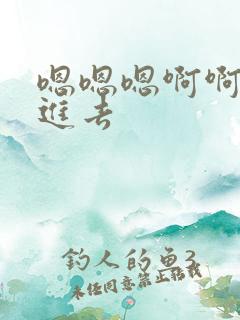 嗯嗯嗯啊啊
進去
钓人的鱼3
未经同意禁止转载